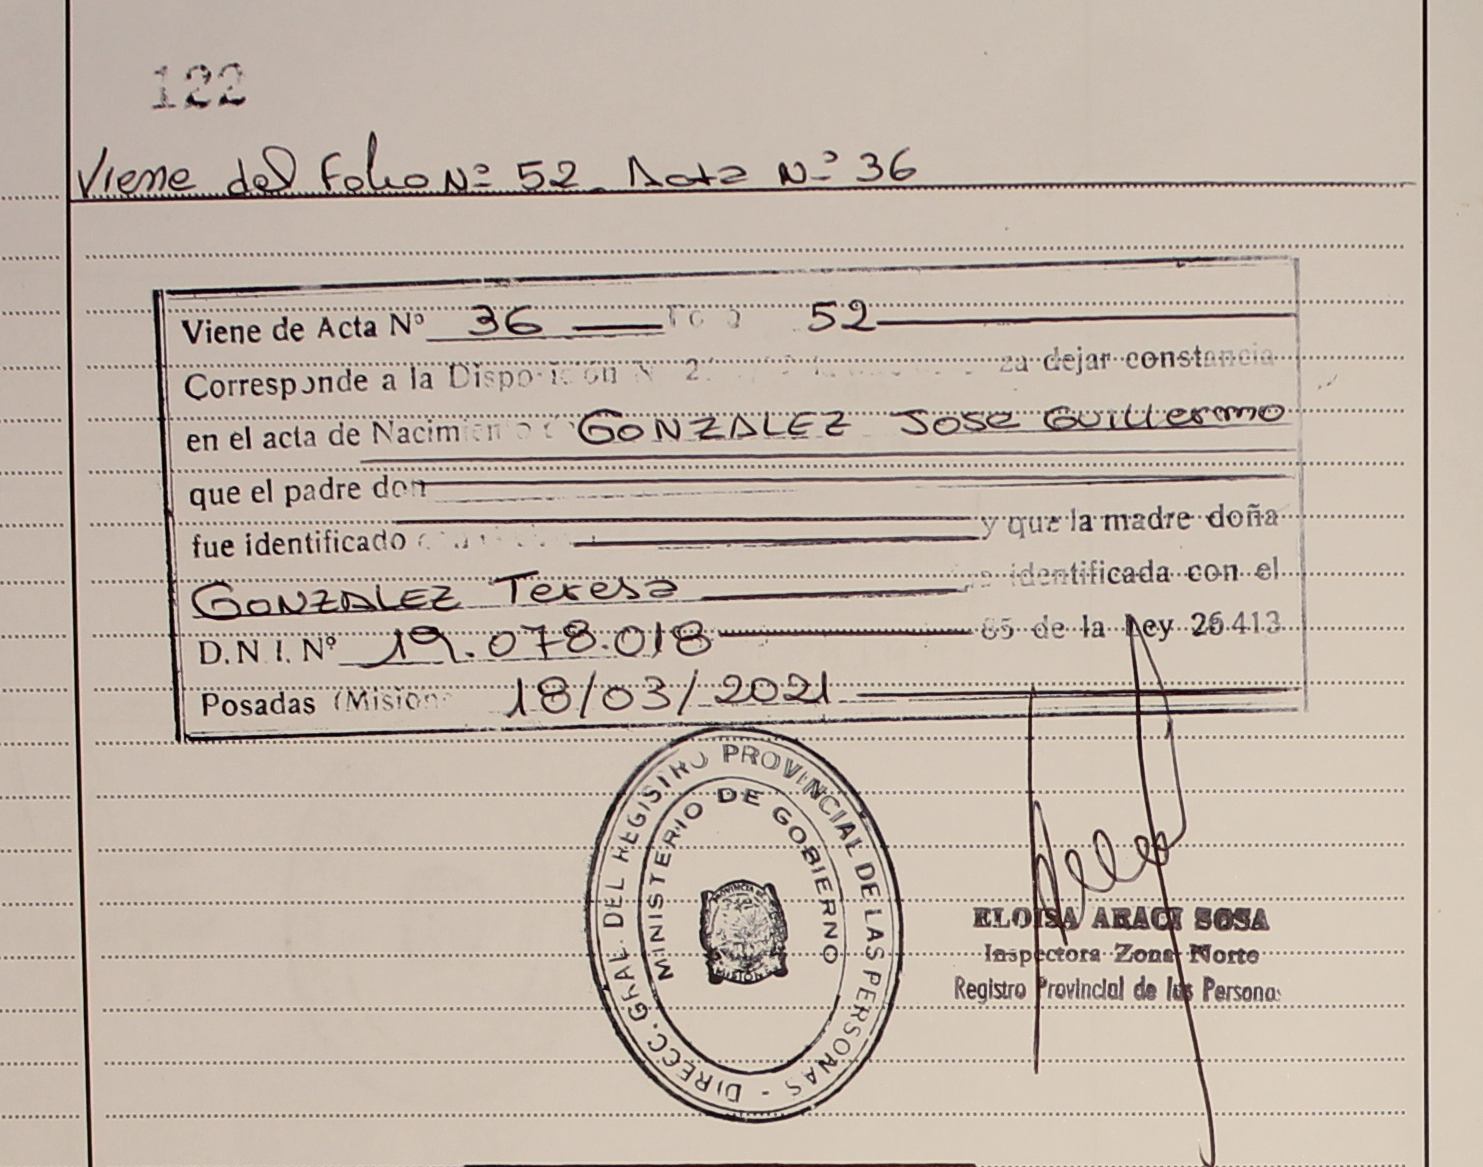 122
Viene del Folio Nº 52 Acta Nº 36
Viene de Acta Nº 36 52
Corresponde a la Disposición Nº 2 dejar constancia
en el acta de Nacimiento GONZALEZ Jose Guillermo
que el padre don
fue identificado y que la madre doña
GONZALEZ Teresa identificada con el
D.N.I. Nº 19.078.018 65 de la Ley 26.413
Posadas (Misiones 18/03/2021
DIRECC. GRAL. DEL REGISTRO PROVINCIAL DE LAS PERSONAS -
MINISTERIO DE GOBIERNO
PROVINCIA DE
MISIONES
ELOISA ARACI SOSA
Inspectora Zona Norte
Registro Provincial de las Personas